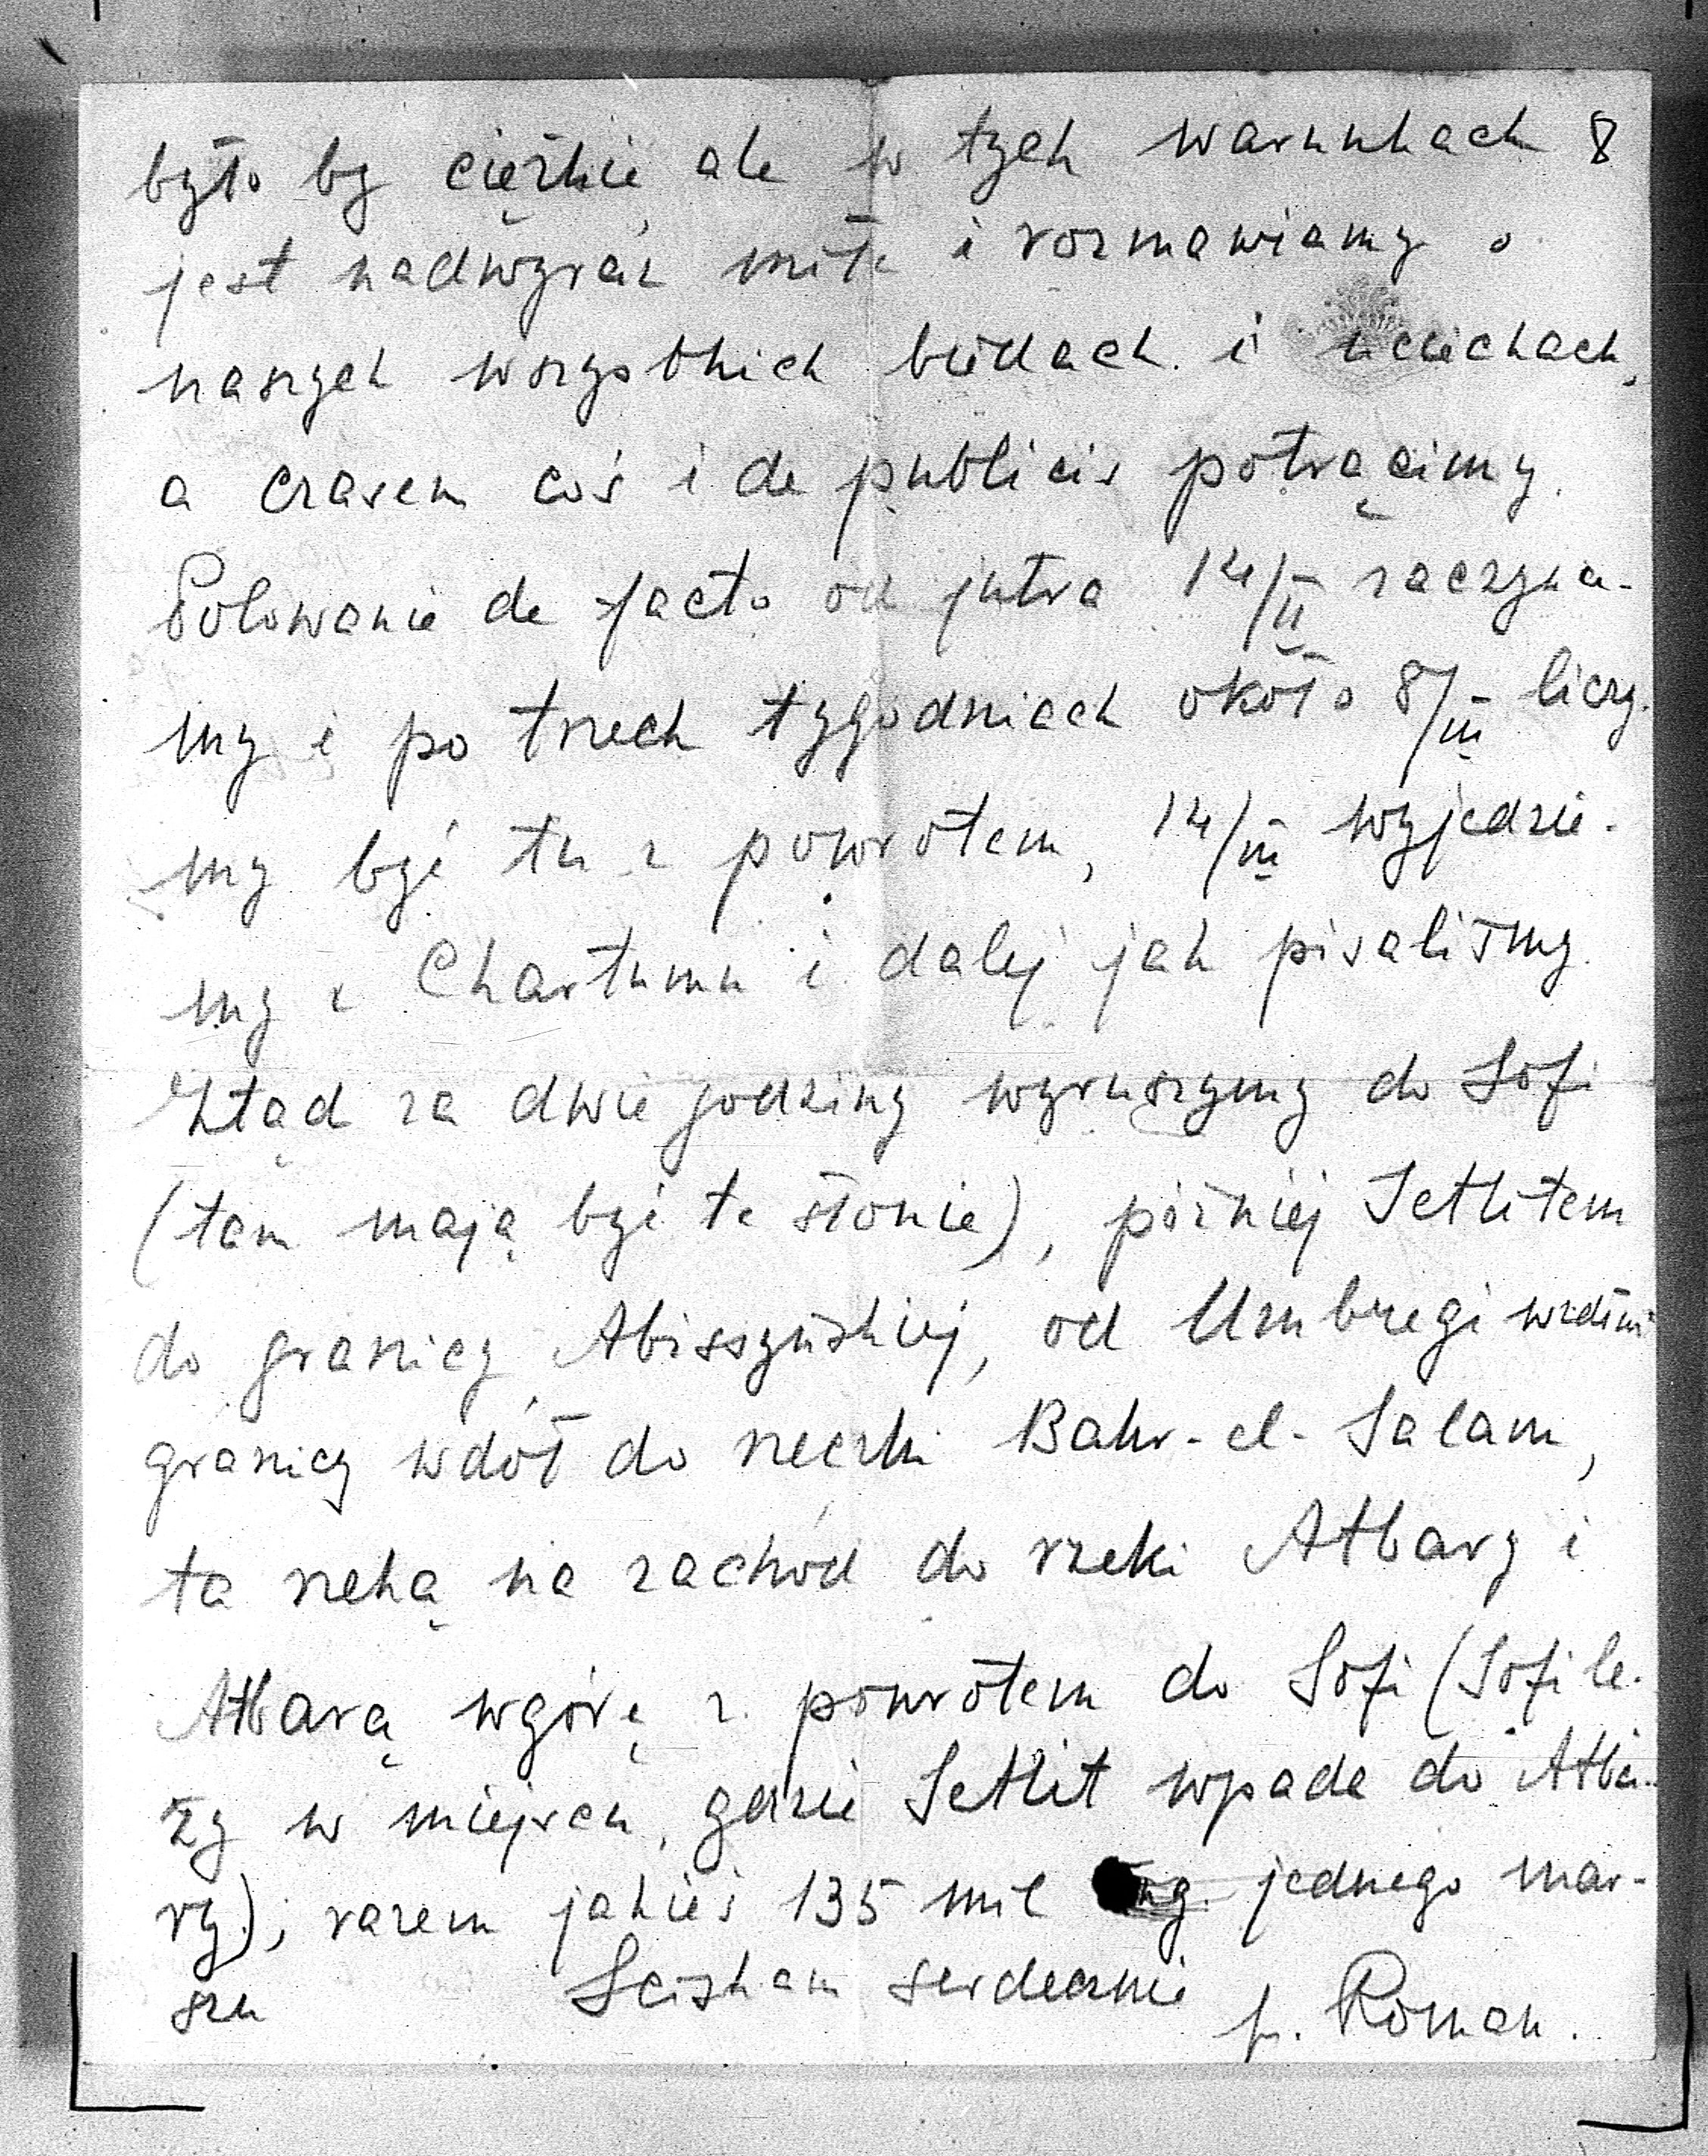 było by ciężkie, ale w tych warunkach 8
jest nadwyraz miłe i rozmawiamy o
naszych wszystkich biedach i uciechach,
a czasem coś i de publicis potrącimy.
Polowanie de facto od jutra 14/II zaczyna-
my i po trzech tygodniach około 8/III liczy-
my być tu z powrotem, 14/III wyjedzie-
my z Chartumu i dalej jak pisaliśmy.
Ztąd za dwie godziny wyruszymy do Sofi
(tam mają być te słonie), później Setlitem
do granicy Abissyńskiej, od Umbregi wzdłuż
granicy wdół do rzeczki Bahr-el-Salam,
ta rzeką na zachód do rzeki Atbary i
Atbarą wgórę z powrotem do Sofi (Sofi le-
ży w miejscu, gdzie Setlit wpada do Atba-
ry), razem jakieś 135 mil ang. jednego mar-
szu Ściskam serdecznie p. Roman.